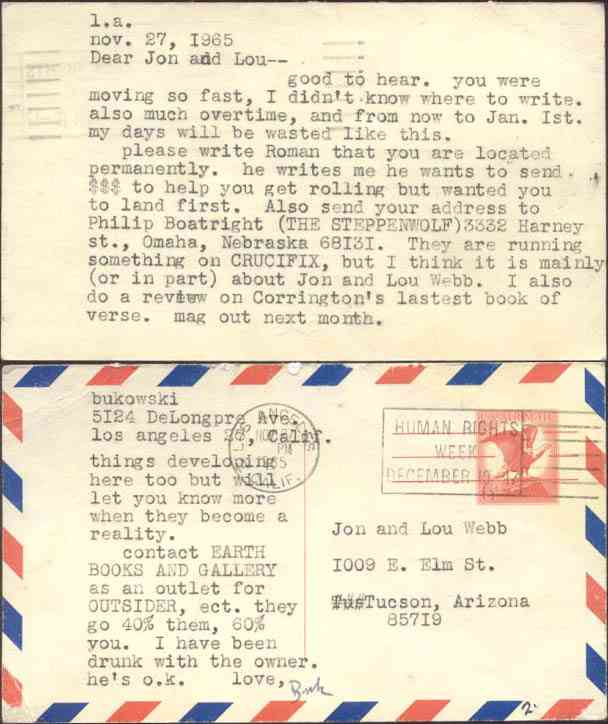 l.a.
nov. 27, 1965
Dear Jon and Lou--
good to hear. you were
moving so fast, I didn't know where to write.
also much overtime, and from now to Jan. Ist.
my days will be wasted like this.
please write Roman that you are located
permanently. he writes me he wants to send
$$$ to help you get rolling but wanted you
to land first. Also send your address to
Philip Boatright (THE STEPPENWOLF)3332 Harney
st., Omaha, Nebraska 68I3I. They are running
something on CRUCIFIX, but I think it is mainly
(or in part) about Jon and Lou Webb. I also
do a review on Corrington's lastest book of
verse. mag out next month.
bukowski
5I24 DeLongpre Ave.
los angeles Calif.
things developing
here too but will
let you know more
when they become a
reality.
contact EARTH
BOOKS AND GALLERY
as an outlet for
OUTSIDER, ect. they
go 40% them, 60%
you. I have been
drunk with the owner.
he's o.k. love,
Buk
PM
CALIF.
HUMAN RIGHTS
WEEK
DECEMBER
Jon and Lou Webb
I009 E. Elm St.
Tucson, Arizona
857I9
2-